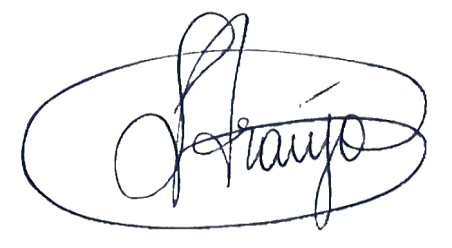 Araújo